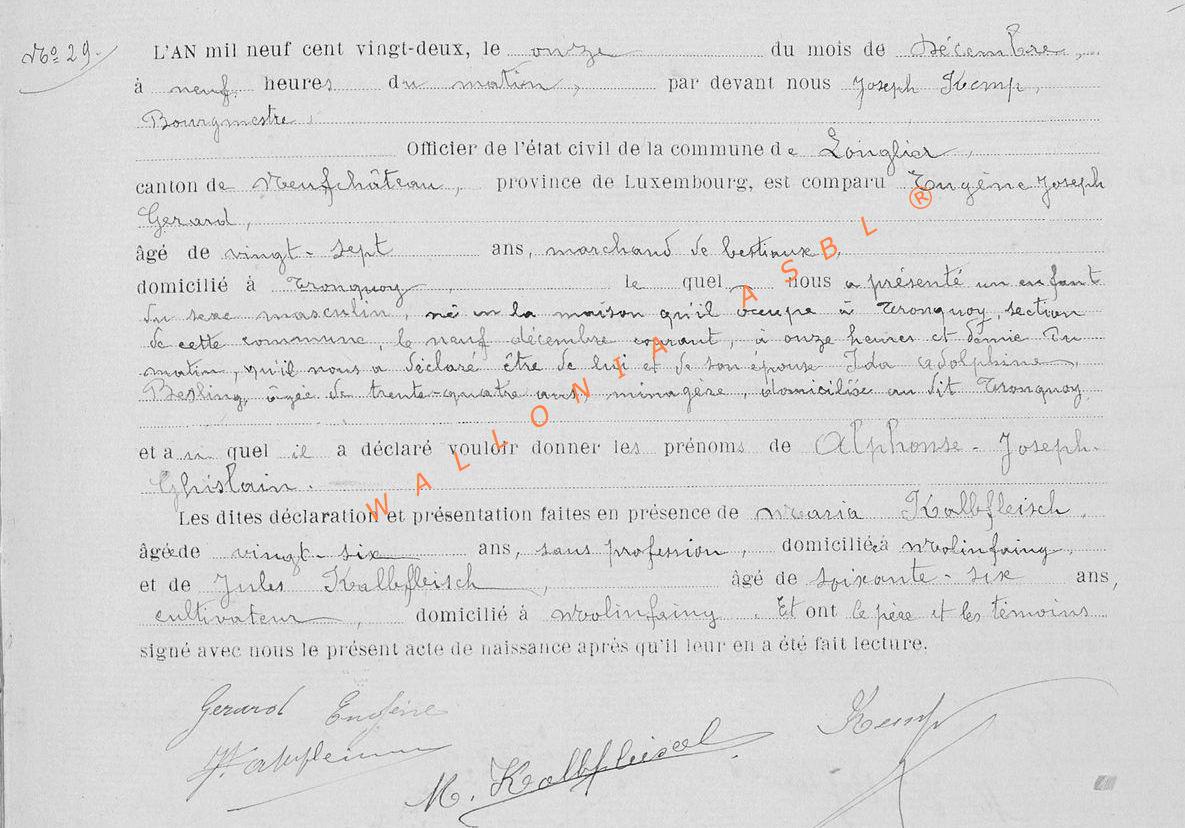 No 29.
L'AN mil neuf cent vingt-deux, le onze du mois de Décembre,
à neuf heures du matin, par devant nous Joseph Kemp,
Bourgmestre,
Officier de l'état civil de la commune de Longlier,
canton de Neufchâteau, province de Luxembourg, est comparu Eugène Joseph
Gerard,
âgé de vingt-sept ans, marchand de bestiaux,
domicilié à Tronquoy, le quel nous a présenté un enfant
du sexe masculin, né en la maison qu'il occupe à Tronquoy, section
de cette commune, le neuf décembre courant, à onze heures et demie du
matin, qu'il nous a déclaré être de lui et de son épouse Ida Adolphine
Besling, âgée de trente-quatre ans, ménagère, domiciliée au dit Tronquoy
et au quel il a déclaré vouloir donner les prénoms de Alphonse-Joseph-
Ghislain.
Les dites déclaration et présentation faites en présence de Maria Kalbfleisch,
âgée de vingt-six ans, sans profession, domiciliée à Molinfaing,
et de Jules Kalbfleisch, âgé de soixante-six ans,
cultivateur, domicilié à Molinfaing. Et ont le père et les témoins
signé avec nous le présent acte de naissance après qu'il leur en a été fait lecture.
Gerard Eugène
M. Kalbfleisch
Kemp
WALLONIA ASBL ®